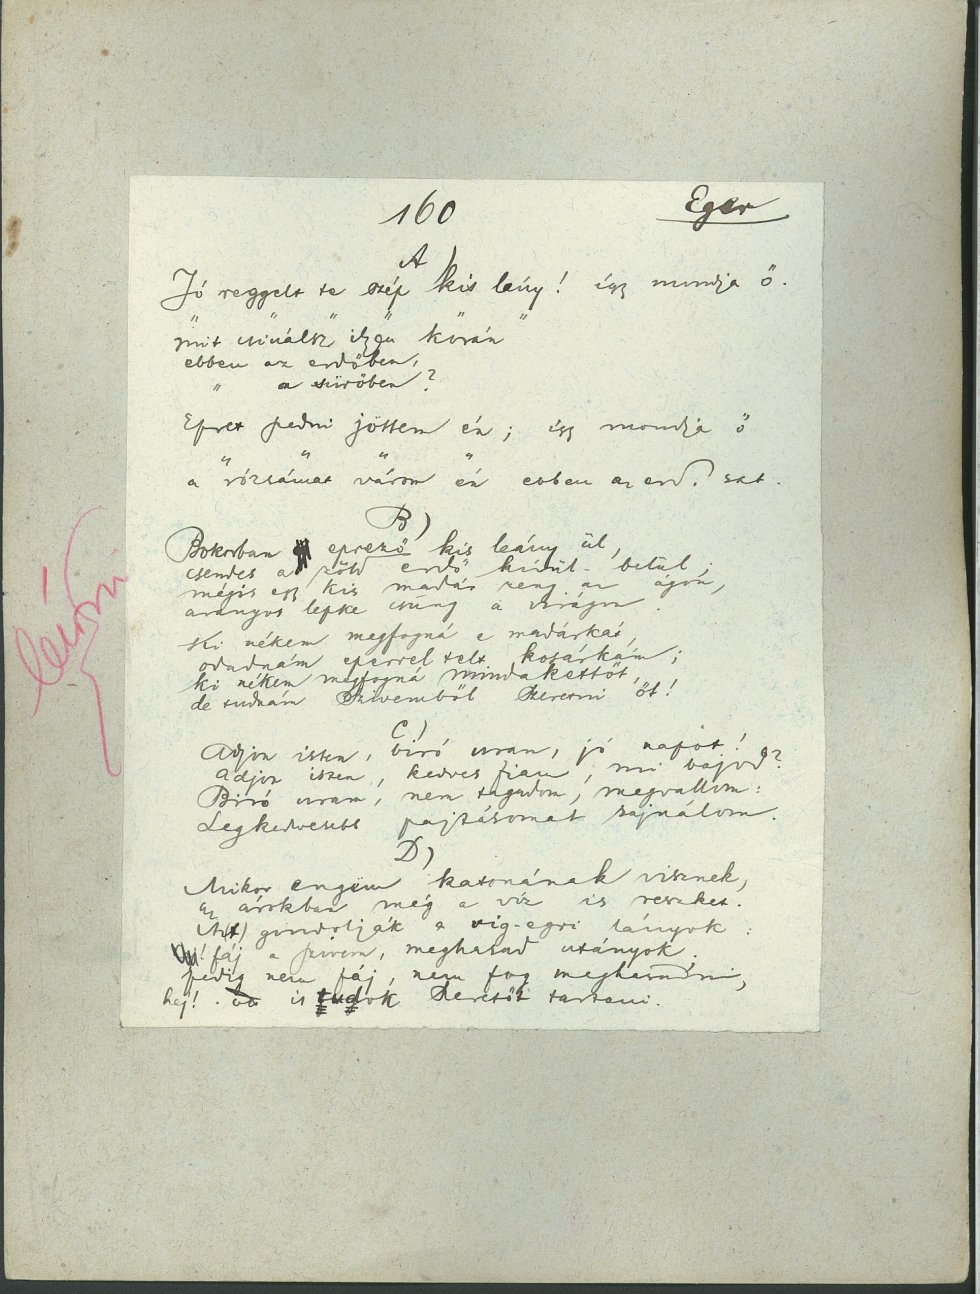 160
Eger
A)
Jó reggelt te szép kis leány! így mondja ő.
" " " " "
mit csinálsz ily korán
ebben az erdőben,
" a sűrőben?
Epret szedni jöttem én; így mondja ő
" " " "
a rózsámat várom én ebben az erd. szt.
B)
Bokorban eprező kis leány ül,
csendes a zöld erdő kivűl-belűl;
mégis egy kis madár zeng az ágon,
aranyos lepke csüng a virágon.
Ki nékem megfogná e madárkát,
odadnám eperrel telt kosárkám;
ki nékem megfogná mindakettőt,
de tudnám szivemből szeretni őt!
C)
Adjon isten, biró uram, jó napot!
Adjon isten, kedves fiam, mi bajod?
Biró uram, nem tagadom, megvallom:
Legkedvesebb pajtásomat sajnálom.
D)
Mikor engem katonának visznek,
az árokban még a víz is reszket.
A(t) gondolják a vig-egri lányok:
Jaj! fáj a szivem, meghasad utányok,
pedig nem fáj, nem fog meghasadni,
hej! is tudok szeretőt tartani.
leirni